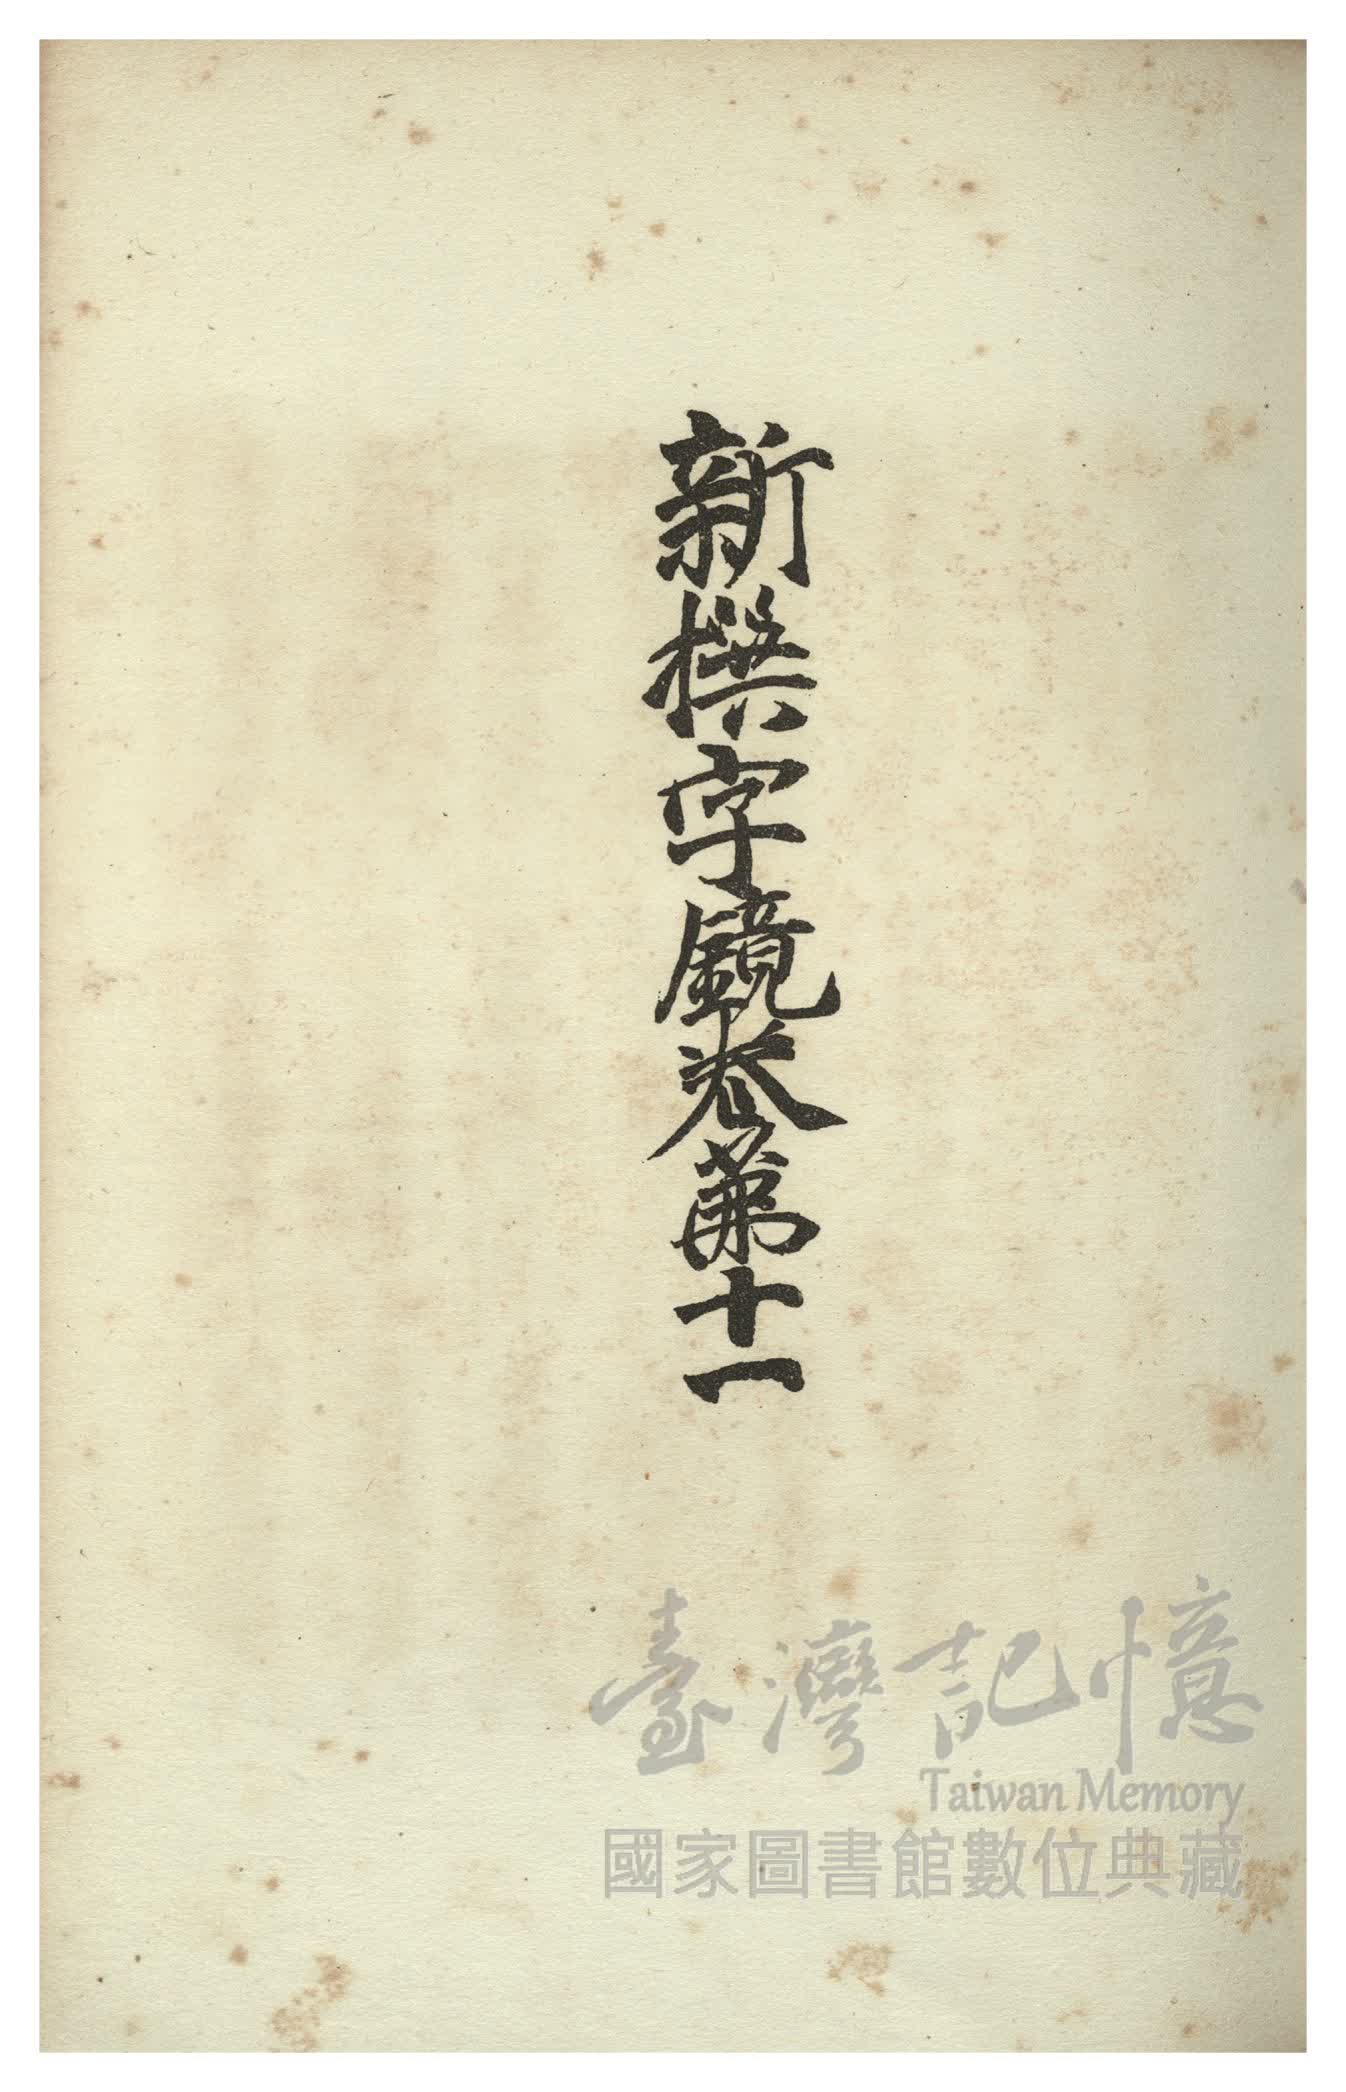 新撰字鏡卷第十一
臺灣記憶
Taiwan Memory
國家圖書館數位典藏